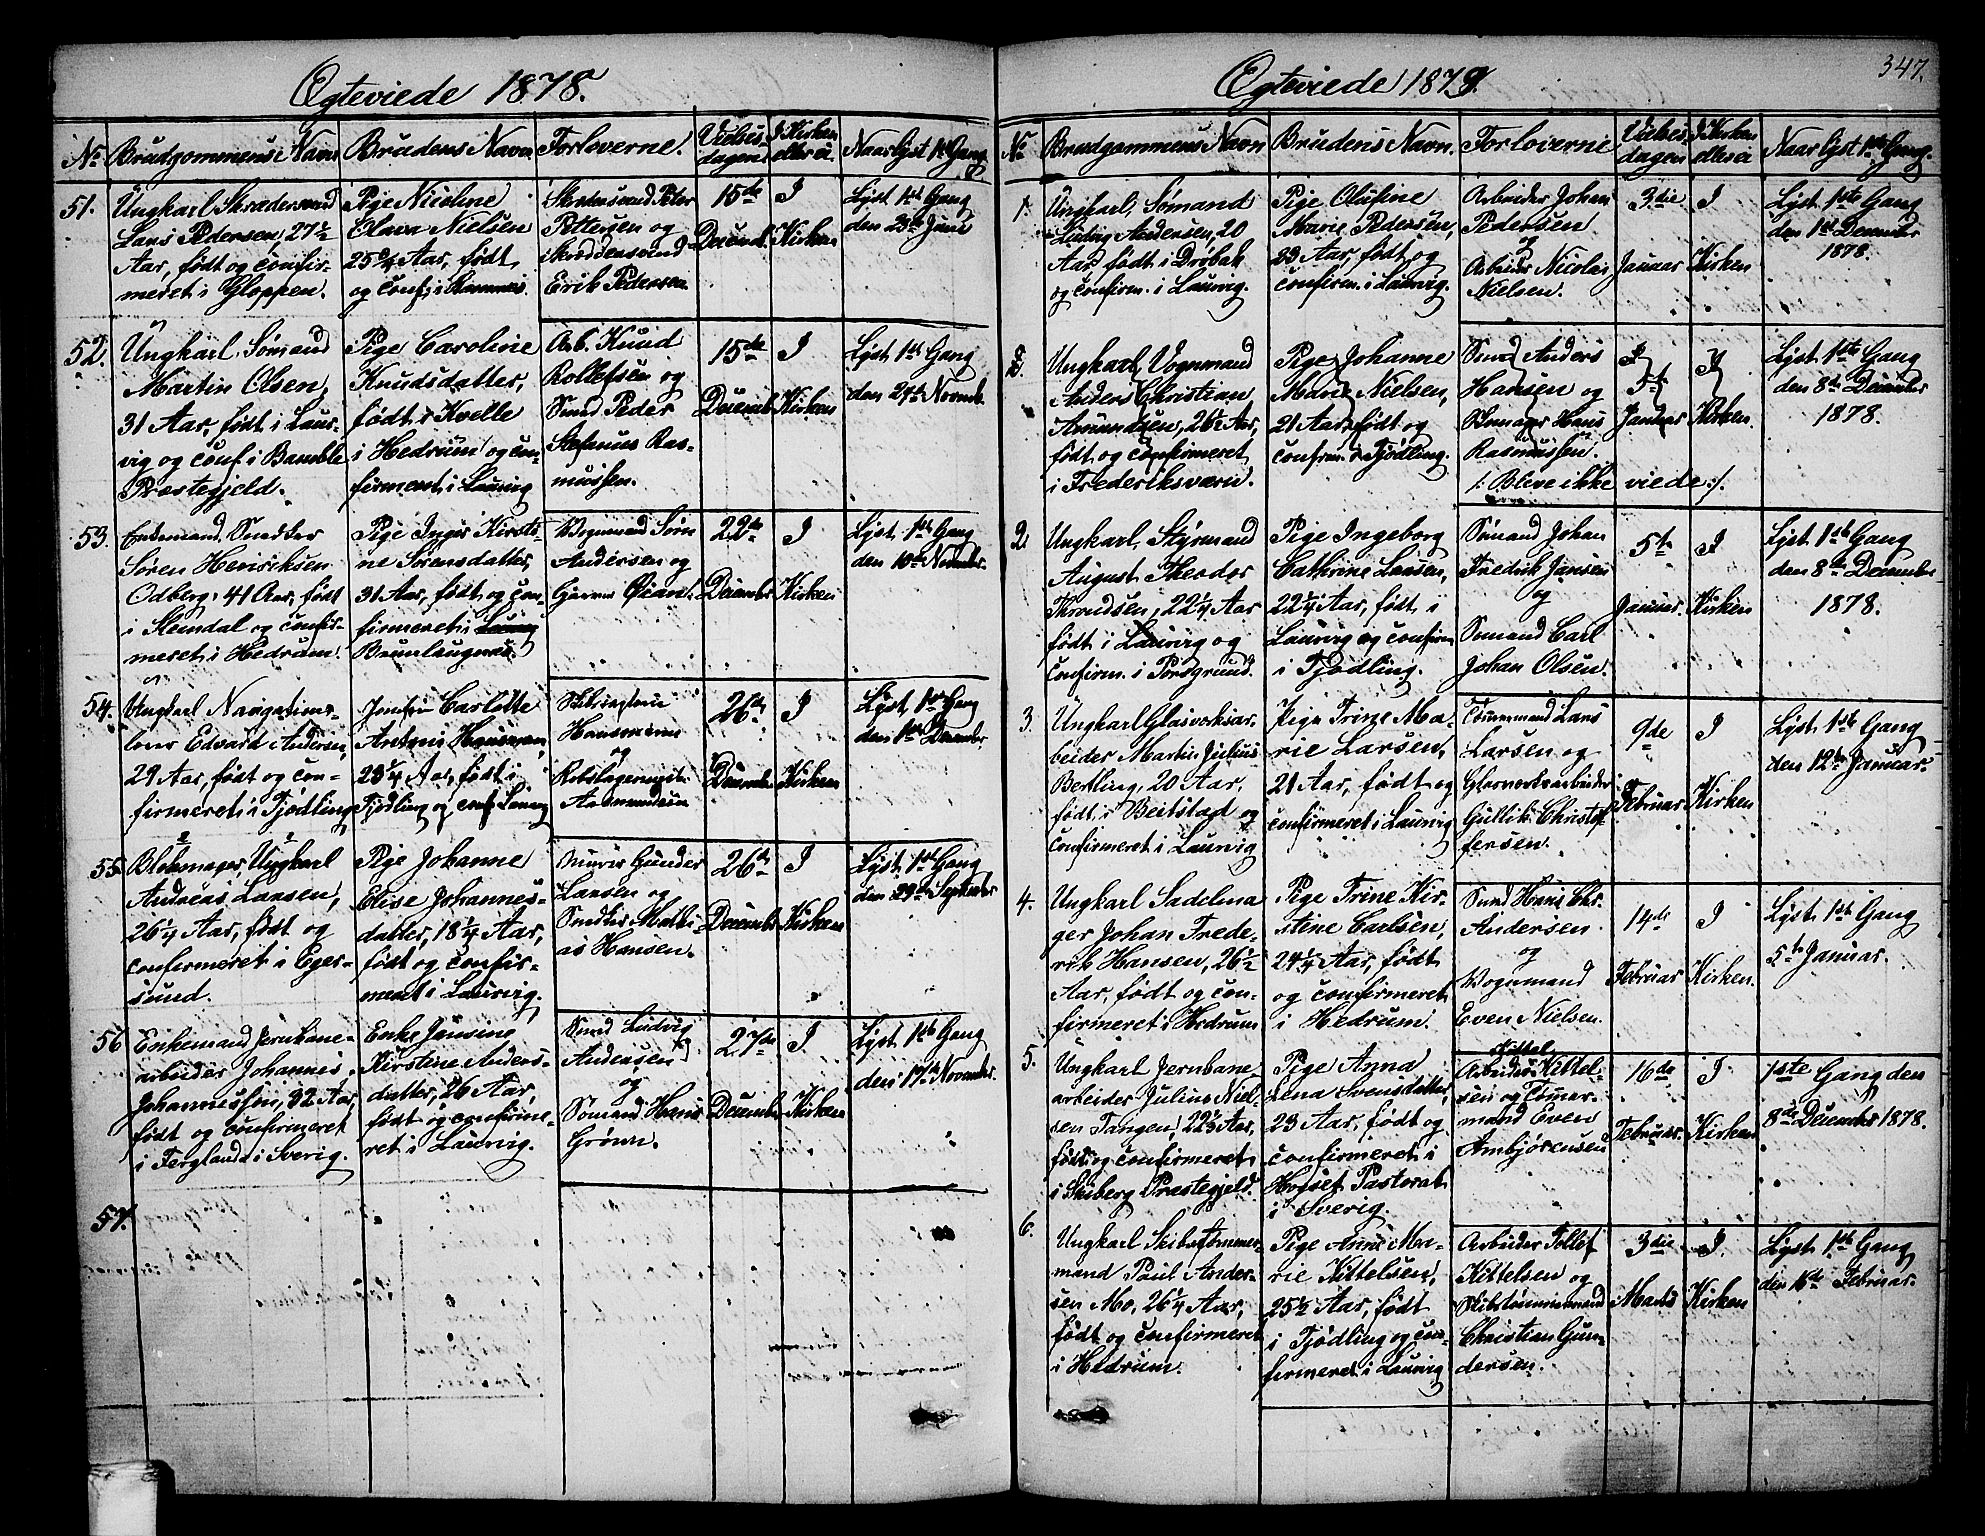 Ægteviede 1878.
No
Brudgommens Navn
Brudens Navn
Forloverne.
Vielses-
dagen
I Kirken
eller ei
Naar lyst 1ste Gang
51.
Ungkarl Skrædersvend
Lars Pedersen, 27½
Aar, født og confir-
meret i Gloppen.
Pige Nicoline
Elava Nielsen
25¾ Aar, født
og conf. i
Skrædersvend Peter
Pettersen og
Skræddersvend
Erik Pedersen
15de
Decemb.
I
Kirken
Lyst 1ste Gang
den 23de Juni
52.
Ungkarl, Sømand
Martin Olsen,
31 Aar, født i Laur-
vig og conf i Bamble
Præstegjeld.
Pige Caroline
Knudsdatter,
født i Kvelle
i Hedrum og con-
firmeret i Laurvig
Arb. Knud
Rollefsen og
Smd Peder
Stefanus Ras-
mussen.
15de
Decemb.
I
Kirken
Lyst 1ste Gang
den 24de Novemb.
53.
Enkemand, Smed
Søren Henriksen
Odberg, 41 Aar, født
i Slemdal og confir-
meret i Hedrum.
Pige Inger Kirsti-
ne Sørensdatter,
31 Aar, født og con-
firmeret i Laurvig
Brunlaugnæs.
Vognmand Søren
Andersen og
22de
Decembr
I
Kirken
Lyst 1ste Gang
den 10de Novembr.
54.
Ungkarl Navigations-
lærer Edvard Andersen,
29 Aar, født og con-
firmeret i Tjødling
Jomfru Carlotte
Antonie Hansmann,
23¼ Aar, født i
Tjødling og conf Laurvig
Hansmann
og
Rebslagersvend
26de
Decembr
I
Kirken
Lyst 1ste Gang
den 1ste Decembr
55.
Blokmager, Ungkarl
Andreas Larsen,
26¼ Aar, født og
confirmeret i Eger-
sund.
Pige Johanne
Elise Johannes-
datter, 18¼ Aar,
født og confir-
meret i Laurvig.
Murer Gunder
Larsen og
Smed Mathi-
as Hansen.
26de
Decembr
I
Kirken
Lyst 1ste Gang
den 29de Septembr
56
Enkemand Jernbane-
arbeider Johannes
Johannesson, 32 Aar,
født og confirmeret
i Ferglanda i Sverig.
Enke Jansine
Kirstine Anders-
datter, 26 Aar,
født og confirme-
ret i Laurvig.
Smd Ludvig
Andersen
og
Sømand Hans
Grønn.
27de
Decembr
I
Kirken
Lyst 1ste Gang
den 17de Novembr.
57.
Ægteviede 1879.
347.
No
Brudgommens Navn
Brudens Navn.
Forloverne
Vielses-
dagen
I Kirken
eller ei
Naar lyst 1ste Gang.
1.
Ungkarl, Sømand
Ludvig Andersen, 20
Aar, født i Drøbak
og confirm. i Laurvig.
Pige Olufine
Marie Pedersen,
23 Aar, født og
confirm. i Laurvig.
Arbeider Johan
Pedersen
og
Arbeider Nicolai
Nielsen.
3die
Januar
I
Kirken
Lyst 1ste Gang
den 1ste December
1878.
2.
Ungkarl, Vognmand
Anders Christian
Amundsen, 26½ Aar,
født og confirmeret
i Frederiksværn.
Pige Johanne
Marie Nielsen,
21 Aar, født og
confirm. i Tjødling.
Smd Anders
Hansen og
Hans
Rasmussen.
/: Bleve ikke viede :/.
Januar
I
Kirken.
Lyst 1ste Gang
den 8de December
1878.
2
Ungkarl, Styrmand
August Theodor
Knudsen, 22¼ Aar
født i Laurvig og
confirm. i Porsgrund.
Pige Ingeborg
Cathrine Larsen,
22¼ Aar, født i
Laurvig og confirm
i Tjødling.
Sømand Johan
Fredrik Jansen
og
Sømand Carl
Johan Olsen.
5te
Januar.
I
Kirken
Lyst 1ste Gang
den 8de December
1878.
3.
Ungkarl Glasværksar-
beider Martin Julius
Bertling, 20 Aar,
født i Beitstad og
confirmeret i Laurvig
Pige Trine Ma-
rie Larsen,
21 Aar, født og
confirmeret i Laurvig
Tømmermand Lars
Larsen og
Glasværksarbeider
Gullik Christof-
fersen.
9de
Februar
I
Kirken
Lyst 1ste Gang
den 12te Januar.
4.
Ungkarl Sadelma
ger Johan Frede-
rik Hansen, 26½
Aar, født og con-
firmeret i Hedrum
Pige Trine Kir-
stine Carlsen,
24¼ Aar, født
og confirmeret
i Hedrum.
Smd Hans Chr.
Andersen
og
Vognmand
Even Nielsen.
14de
Februar
I
Kirken.
Lyst 1ste Gang
5te Januar.
5.
Ungkarl Jernbane
arbeider Julius Niel-
sen Tangen, 22½ Aar,
født og confirmeret
i Skiberg Præstegjeld.
Pige Anna
Lena Svensdatter,
23 Aar, født og
confirmeret i
Hogset Pastorat
i Sverig.
Kittel
Arbeider Kittel-
sen og Tømer-
mand Even
Ambjørensen
16de
Februar.
I
Kirken
1ste Gang den
8de December 1878.
6.
Ungkarl Skibstømmer-
mand Paul Ander-
sen Mo, 26¼ Aar,
født og confirmeret
i Hedrum.
Pige Anne Ma-
rie Kittelsen,
25½ Aar, født
i Tjødling og con-
firmeret i Laurvig
Arbeider Tollef
Kittelsen og
Skibstømmermand
Christian Gun-
dersen.
3die
Marts
I
Kirken
Lyst 1ste Gang
den 16de Februar.